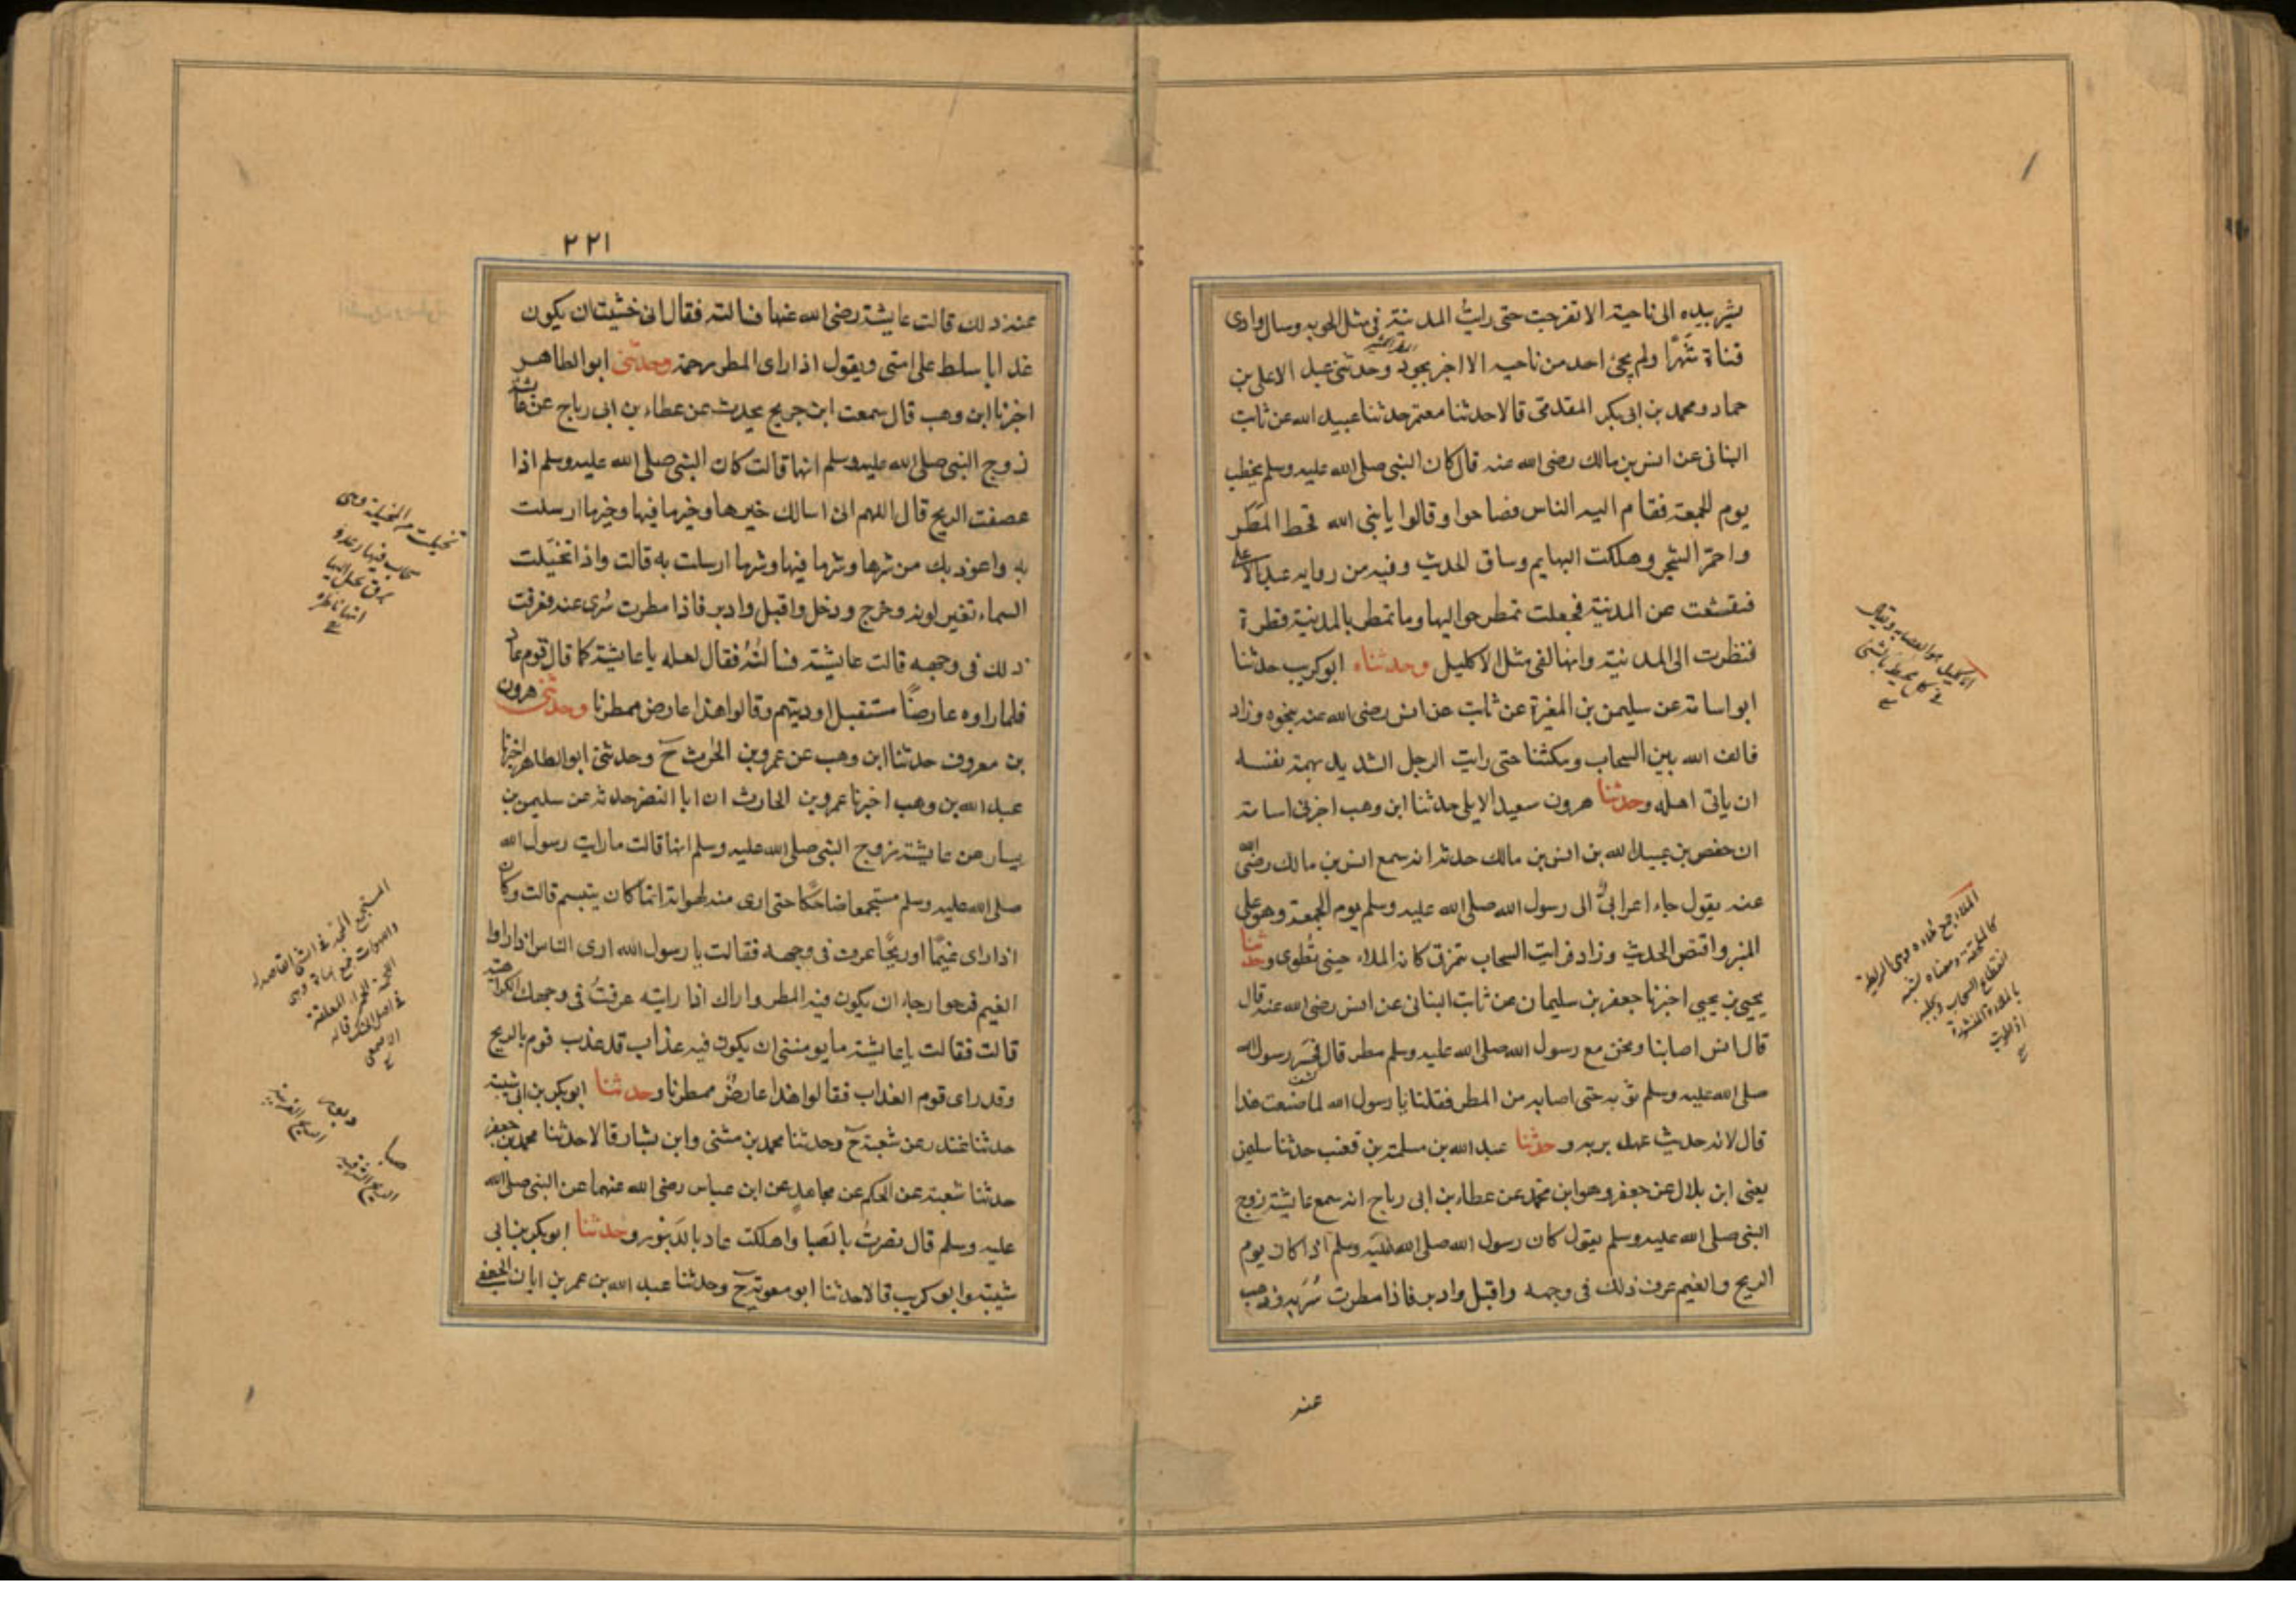 يشير بيده الى ناحية الا تفرجت حتى رايت المدينة في مثل الجوبه وسال وادى
قناة شهرًا ولم يجئ احد من ناحيه الا اخبر بجود وحدثنى عبد الاعلى بن
حماد ومحمد بن ابى بكر المقدمى قالا حدثنا معتمر حدثنا عبيد الله عن ثابت
البنانى عن انس بن مالك رضى الله عنه قال كان النبى صلى الله عليه وسلم يخطب
يوم الجمعة فقام اليه الناس فصاحوا وقالوا يا نبى الله قحط المطر
واحمر الشجر وهلكت البهايم وساق الحديث وفيه من روايه عبد الاعلى
فتقشعت عن المدينة فجعلت تمطر حواليها وما تمطر بالمدينة قطرة
فنظرت الى المدينة وانها لفى مثل الاكليل وحدثناه ابو كريب حدثنا
ابو اسامة عن سليمن بن المغيرة عن ثابت عن انس رضى الله عنه بنحوه وزاد
فالف الله بين السحاب ومكثنا حتى رايت الرجل الشديد تهمه نفسه
ان ياتى اهله وحدثنا هرون سعيد الايلى حدثنا ابن وهب اخبرنى اسامة
ان حفص بن عبيد الله بن انس بن مالك حدثه انه سمع انس بن مالك رضى الله
عنه يقول جاء اعرابى الى رسول الله صلى الله عليه وسلم يوم الجمعة وهو على
المنبر واقتص الحديث وزاد فرايت السحاب يتمزق كانه الملاء حين تطوى وحدثنا
يحيى بن يحيى اخبرنا جعفر بن سليمان عن ثابت البنانى عن انس رضى الله عنه قال
قال انس اصابنا ونحن مع رسول الله صلى الله عليه وسلم مطر قال فحسر رسول الله
صلى الله عليه وسلم ثوبه حتى اصابه من المطر فقلنا يا رسول الله لما صنعت هذا
قال لانه حديث عهد بربه وحدثنا عبد الله بن مسلمة بن قعنب حدثنا سليمن
يعنى ابن بلال عن جعفر وهو ابن محمد عن عطاء بن ابى رباح انه سمع عايشة زوج
النبى صلى الله عليه وسلم يقول كان رسول الله صلى الله عليه وسلم اذا كان يوم
الريح والغيم عرف ذلك فى وجهه واقبل وادبر فاذا مطرت سر به وذهب
عنه
الاكليل هو العصابه وتقال
فى كل محيط بالشئ
الملاء جمع ملاءه وهى الريطة
كالملحفة ومعناه شبه
انقطاع السحاب وتجليه
بالملاءة المنشورة
اذا طويت
٢٢١
عنه ذلك قالت عايشة رضى الله عنها فسالته فقال انى خشيت ان يكون
عذابا سلط على امتى ويقول اذا راى المطر رحمة وحدثنى ابو الطاهر
اخبرنا ابن وهب قال سمعت ابن جريج يحدث عن عطاء بن ابى رباح عن عايشة
زوج النبى صلى الله عليه وسلم انها قالت كان النبى صلى الله عليه وسلم اذا
عصفت الريح قال اللهم انى اسالك خيرها وخير ما فيها وخير ما ارسلت
به واعوذ بك من شرها وشر ما فيها وشر ما ارسلت به قالت واذا تخيلت
السماء تغير لونه وخرج ودخل واقبل وادبر فاذا مطرت سُرى عنه فعرفت
ذلك فى وجهه قالت عايشة فسالته فقال لعله يا عايشة كما قال قوم عاد
فلما راوه عارضًا مستقبل اوديتهم وقالوا هذا عارض ممطرنا وحدثنى هرون
بن معروف حدثنا ابن وهب عن عمرو بن الحرث ح وحدثنى ابو الطاهر اخبرنا
عبد الله بن وهب اخبرنا عمرو بن الحارث ان ابا النضر حدثه عن سليمن بن
يسار عن عايشة زوج النبى صلى الله عليه وسلم انها قالت ما رايت رسول الله
صلى الله عليه وسلم مستجمعا ضاحكًا حتى ارى منه لهواته انما كان يتبسم قالت وكان
اذا راى غيمًا او ريحًا عرف فى وجهه فقالت يا رسول الله ارى الناس اذا راوا
الغيم فرحوا رجاء ان يكون فيه المطر واراك اذا رايته عرفتُ فى وجهك الكراهية
قالت فقالت يا عايشة ما يومننى ان يكون فيه عذاب قد عذب قوم بالريح
وقد راى قوم العذاب فقالوا هذا عارضٌ ممطرنا وحدثنا ابو بكر بن ابى شيبة
حدثنا غندر عن شعبة ح وحدثنا محمد بن مثنى وابن بشار قالا حدثنا محمد بن جعفر
حدثنا شعبة عن الحكم عن مجاهد عن ابن عباس رضى الله عنهما عن النبى صلى الله
عليه وسلم قال نصرتُ بالصبا واهلكت عاد بالدبور وحدثنا ابو بكر بن ابى
شيبة وابو كريب قالا حدثنا ابو معوية ح وحدثنا عبد الله بن عمر بن ابان الجعفى
تخيلت من المخيلة وهى
سحاب فيها رعد و
برق يخيل اليها
انها ماطرة
المستجمع المجد فى الشئ القاصد له
واللهوات جمع لهاة وهى
اللحمة الحمراء المعلقة
فى اصل الحنك قاله
الاصمعى
صبا
الريح الشرقيه
ودبور
الريح الغربيه